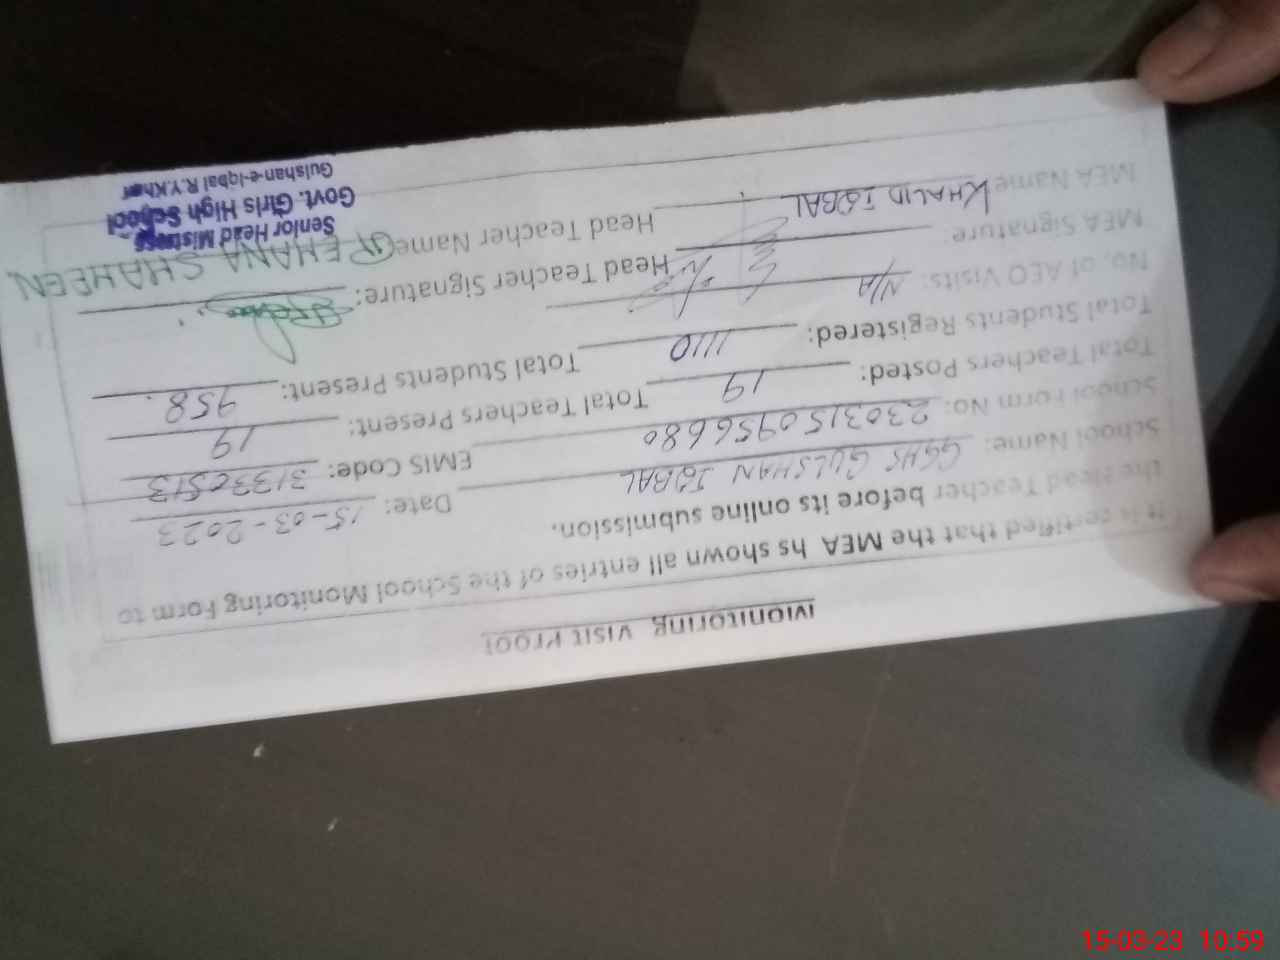 Monitoring Visit Proof
It is certified that the MEA hs shown all entries of the School Monitoring Form to
the Head Teacher before its online submission. Date: 15-03-2023
School Name: GGHS GULSHAN IQBAL EMIS Code: 31330513
School Form No: 2303150956680
Total Teachers Posted: 19 Total Teachers Present: 19
Total Students Registered: 1110 Total Students Present: 958
No. of AEO Visits: N/A
MEA Signature: Head Teacher Signature:
MEA Name KHALID IQBAL Head Teacher Name REHANA SHAHEEN
Senior Head Mistress
Govt. Girls High School
Gulshan-e-Iqbal R.Y.Khan
15-03-23 10:59